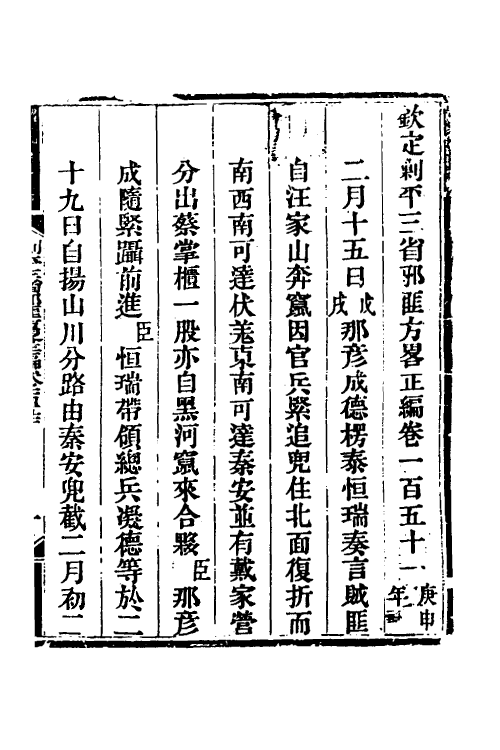 欽定剿平三省邪匪方畧正編卷一百五十一 庚申年
二月十五日戊戌那彥成德楞泰恒瑞奏言賊匪
自汪家山奔竄因官兵緊追兜住北面復折而
南西南可達伏羌東南可達秦安並有戴家營
分出蔡掌櫃一股亦自黑河竄來合夥臣那彥
成隨緊躡前進臣恒瑞帶領總兵凝德等於二
十九日自揚山川分路由秦安兜截二月初二